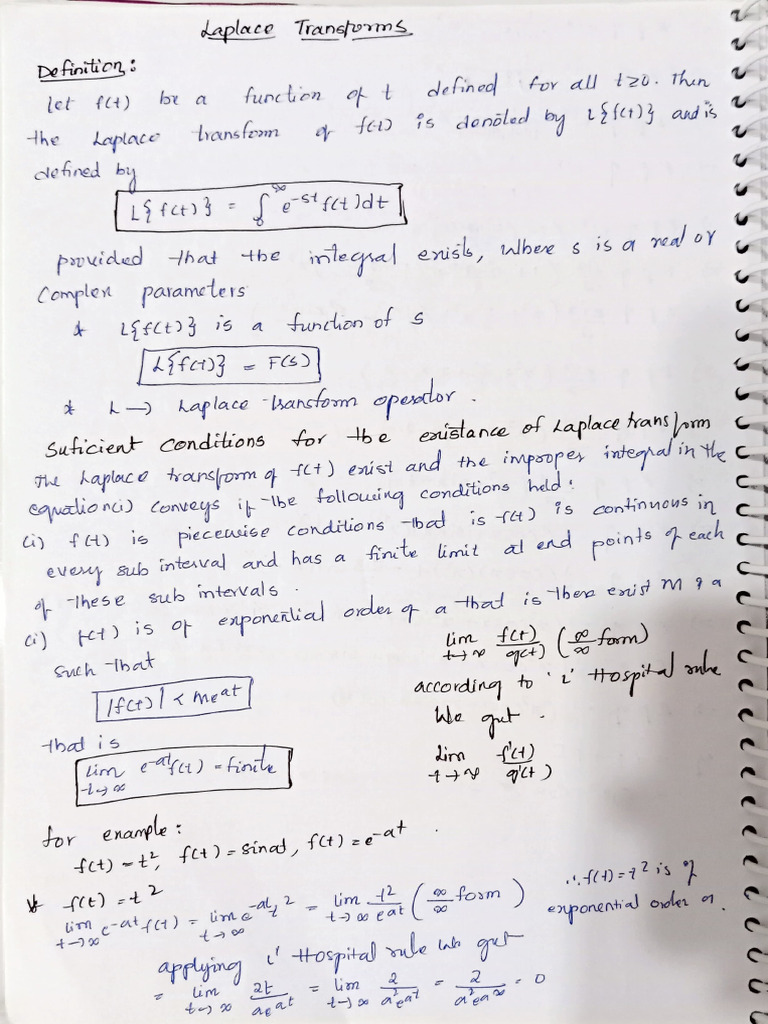 Laplace Transforms
Definition:
let f(t) be a function of t defined for all t≥0. Then
the Laplace transform of f(t) is denoted by L{f(t)} and is
defined by
L{f(t)} = ∫₀^∞ e^-st f(t)dt
provided that the integral exists, where s is a real or
Complex parameters
* L{f(t)} is a function of s
L{f(t)} = F(s)
* L → Laplace transform operator.
Suficient conditions for the existance of Laplace transform
The Laplace transform of f(t) exist and the improper integral in the
equation(i) conveys if the following conditions held:
(i) f(t) is piecewise conditions that is f(t) is continuous in
every sub interval and has a finite limit at end points of each
of these sub intervals.
(i) f(t) is of exponential order of a that is there exist M & a
such that
|f(t)| < Me^at
that is
lim t→∞ e^-at f(t) = finite
lim t→∞ f(t)/g(t) (∞/∞ form)
according to 'L' Hospital rule
We get.
lim t→∞ f'(t)/g'(t)
for example:
f(t) = t², f(t) = sinat, f(t) = e^-at.
* f(t) = t²
lim t→∞ e^-at f(t) = lim t→∞ e^-at t² = lim t→∞ t²/e^at (∞/∞ form)
applying L' Hospital rule we get
= lim t→∞ 2t/ae^at = lim t→∞ 2/a²e^at = 2/a²e^a∞ = 0
∴ f(t) = t² is of
exponential order a.